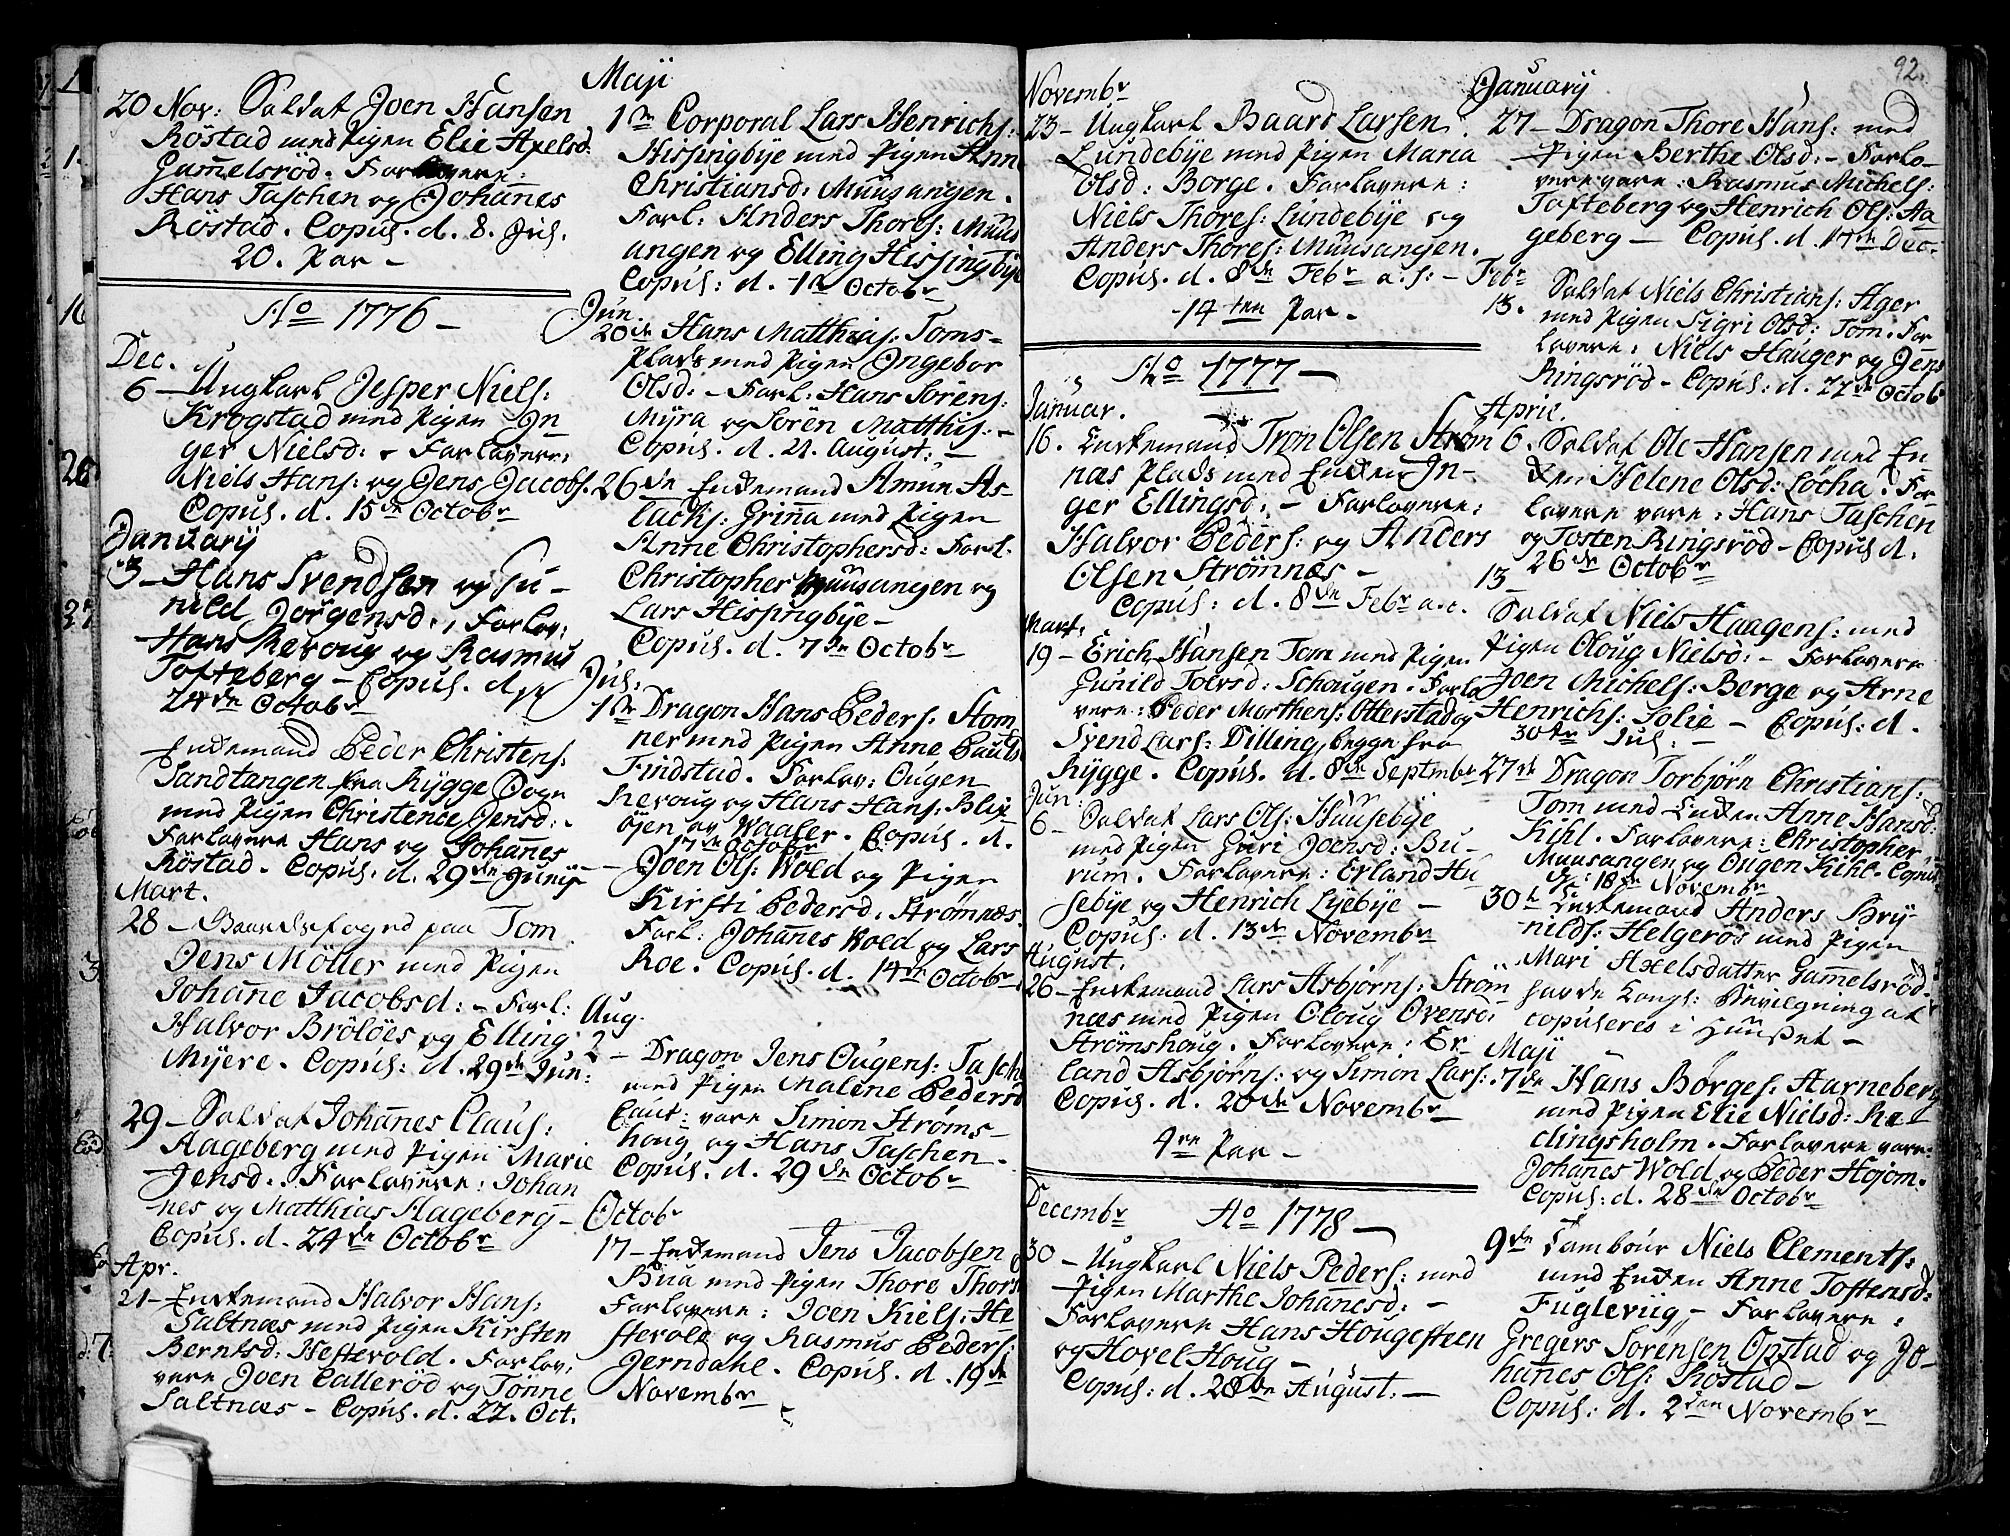 20 Nov: Soldat Joen Hansen
Röstad med Pigen Elie Axelsd:
Gamelsröd. Forlovere:
Hans Taschen og Johanes
Röstad. Copul. d. 8. Jul.
20. Par -
Ao 1776 -
Dec.
6 - Ungkarl Jesper Niels:
Krogstad med Pigen In
ger Nielsd: - Forlovere:
Niels Hans: og Jens Jacobs.
Copul. d. 15de Octobr
Januarij
3 - Hans Svendsen og Gu-
nild Jörgensd:, Forlov:
Hans Revoug og Rasmus
Tofteberg - Copul. d.
24de Octobr
Enkemand Peder Christens:
Sandtangen fra Rygge Sogn
med Pigen Christence Jensd: -
Forlovere Hans og Johanes
Röstad. Copul. d. 29de Junij
Mart.
28 - Gaardsfoged paa Tom
Jens Möller med Pigen
Johane Jacobsd: - Forl:
Halvor Brölöes og Elling
Myere. Copul: d. 29de Jun:
29 - Soldat Johanes Claus:
Aageberg med Pigen Marie
Jensd. Forlovere: Johan
nes og Matthias Aageberg -
Copul. d. 24de Octobr
Apr.
21 - Enkemand Halvor Hans:
Saltnæs med Pigen Kirsten
Berntsd: Hestevold. Forlov,
vere Joen Callerød og Tönne
Saltnæs - Copul. d. 22. Oct.
Maji
1te Corporal Lars Henrichs:
Hissingbye med Pigen Ann
Christiansd: Muusangen.
Forl: Anders Thores: Muus
angen og Elling Hissingbye
Copul: d. 1te Octobr
Jun.
20de Hans Matthis: Toms-
Plads med Pigen Ingebor
Olsd: - Forl: Hans Sörens:
Myra og Sören Matthis: -
Copul. d. 21. August: -
26de Enkemand Amun As-
lacks: Grina med Pigen
Anne Christophersd: Forl:
Christopher Muusangen og
Lars Hissingbye -
Copul. d. 7de Octobr
Jul:
1te Dragon Hans Peders: Hom
ner med Pigen Anne Pauls
Findstad. Forlov: Ougen
Revoug og Hans Hans: Blix
öjen og Waaler. Copul. d.
17de Octobr
- Joen Ols: Wold og Pigen
Kirsti Pedersd: Strømnæs
Forl: Johanes Wold og Lars
Roe. Copul. d. 14de Octobr
Aug.
2 - Dragon Jens Ougens: Tasch
med Pigen Malene Pedersd
Caut: vare Simon Ströms-
houg og Hans Taschen.
Copul. d. 29de Octobr
Octobr
17 - Enkemand Jens Jacobsen
Bua med Pigen Thore Thors
Forlovere: Joen Kiels: He-
stevold og Rasmus Peders:
Jerndahl. Copul. d. 19de
Novembr
Novembr
23 - Ungkarl Baard Larsen
Lundebye med Pigen Maria
Olsd: Borge. Forlovere:
Niels Thores: Lundebye og
Anders Thores: Muusangen.
Copul. d. 8de Febr a.s: -
14ten Par.
Ao 1777 -
Januar.
16. Enkemand Tron Olsen Strøm
næs Plads med Enken In-
ger Ellingsd: - Forlovere:
Halvor Peders: og Anders
Olsen Strømnæs -
Copul: d. 8de Febr a.c.
Mart:
19 - Erich Hansen Tom med Pigen
Gunild Toersd: Schougen. Forlo
vere: Peder Morthens: Otterstad og
Svend Lars: Dilling, begge fra
Rygge. Copul. d. 8de Septembr
Jun:
6 - Soldat Lars Ols: Huusebye
med Pigen Guri Joensd: Bu-
rum. Forlovere: Erland Hu
sebye og Henrich Lyebye -
Copul: d. 13de Novembr
August.
26 - Enkemand Lars Asbjörns: Ström
næs med Pigen Oloug Ovensd:
Strømshoug. Forlovere: Er-
land Asbjörns: og Simon Lars:
Copul. d. 20de Novembr
9re Par -
Ao 1778 -
Decembr
30 - Ungkarl Niels Peders: med
Pigen Marthe Johanesd: -
Forlovere Hans Hougesteen
og Hovel Houg -
Copul: d. 28de August: -
92.
Januarij
27 - Dragon Thore Hans: med
Pigen Berthe Olsd: - Forlo-
vere vare: Rasmus Michels:
Tofteberg og Henrich Ols: Aa
geberg - Copul. d. 17de Dec.
Febr
13. Soldat Niels Christians: Ager
med Pigen Sigri Olsd: Tom. For
lovere: Niels Hauger og Jens
Ringsröd - Copul: d. 22de Octob
April.
6. Soldat Ole Hansen med En
ken Helene Olsd: Locha. For
lovere vare: Hans Taschen
og Tosten Ringsröd - Copul d.
26de Octobr
13 -
Soldat Niels Haagens: med
Pigen Oloug Nielsd: - Forlovere
Joen Michels: Berge og Arne
Henrichs: Solie - Copul: d.
30te Jul: -
27de Dragon Torbjörn Christians:
Tom med Enken Anne Hansd:
Kihl. Forlovere: Christopher
Muusangen og Ougen Kihl. Copul:
d: 18de Novembr
30t Enkemand Anders Bry-
nilds: Helgerös med Pigen
Mari Axelsdatter Gamelsröd
havde Kongl: Bevilgning at
copuleres i Huuset -
Maji
7de Hans Börges: Aarneberg
med Pigen Elie Nielsd: Re
dingsholm. Forlovere vare:
Johanes Wold og Peder Hojom.
Copul: d. 28de Octobr
9de Tambour Niels Clements:
med Enken Anne Tostensd:
Fuglevüg - Forlovere:
Gregers Sörensen Opstad og Jo-
hanes Ols: Rostad -
Copul: d. 2den Novembr